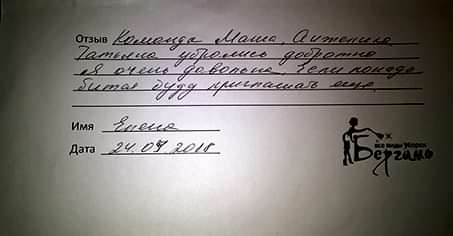 Отзыв Команда Маша, Анжелика,
Татьяна убрались добротно
Я очень довольна. Если понадо
бится буду приглашать еще.
Имя Елена
Дата 24.04 2018
все виды уборки
Бергамо